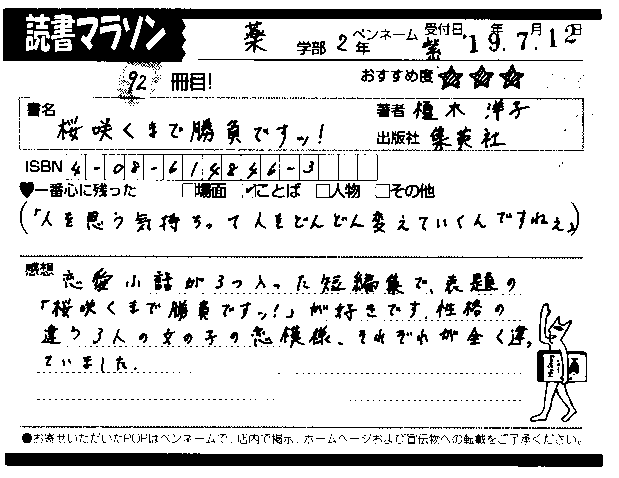 読書マラソン
薬 学部 2年 ペンネーム 紫 受付日 '19年 7月 12日
92 冊目! おすすめ度 ☆☆☆
書名 桜咲くまで勝負ですッ!
著者 檀木 洋子
出版社 集英社
ISBN 4-08-614846-3
♥一番心に残った □場面 ☑ことば □人物 □その他
(「人を思う気持ちって人をどんどん変えていくんですねぇ」)
感想 恋愛小話が3つ入った短編集で、表題の
「桜咲くまで勝負ですッ!」が好きです。性格の
違う3人の女の子の恋模様、それぞれが全く違っ
ていました。
●お寄せいただいたPOPはペンネームで、店内で掲示、ホームページおよび宣伝物への転載をご了承ください。